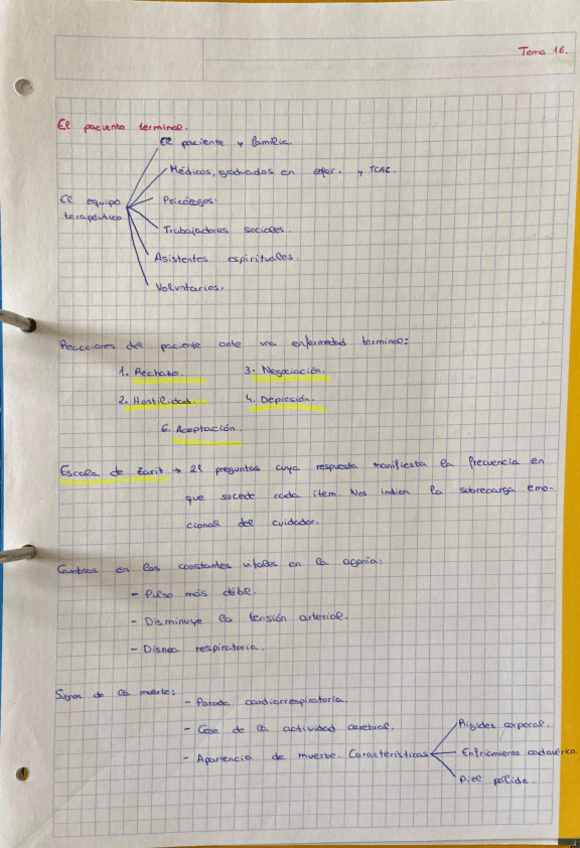 Tema 16.
El paciente terminal.
El paciente y familia.
Médicos, graduados en efer. y TCAE.
El equipo terapéutico
Psicólogos.
Trabajadores sociales.
Asistentes espirituales.
Voluntarios.
Reacciones del paciente ante una enfermedad terminal:
1. Rechazo. 3. Negociación.
2. Hostilidad. 4. Depreción.
6. Aceptación.
Escala de Zarit → 21 preguntas cuya respuesta manifiesta la frecuencia en
que sucede cada item. Nos indica la sobrecarga emo-
cional del cuidador.
Cambios en las constantes vitales en la agonía:
- Pulso más débil.
- Disminuye la tensión arterial.
- Disnea respiratoria.
Signos de la muerte:
- Parada cardiorrespiratoria.
- Cese de la actividad cerebral.
- Apariencia de muerte. Características
Rigidez corporal.
Enfriamiento cadavérico.
Piel pálida.